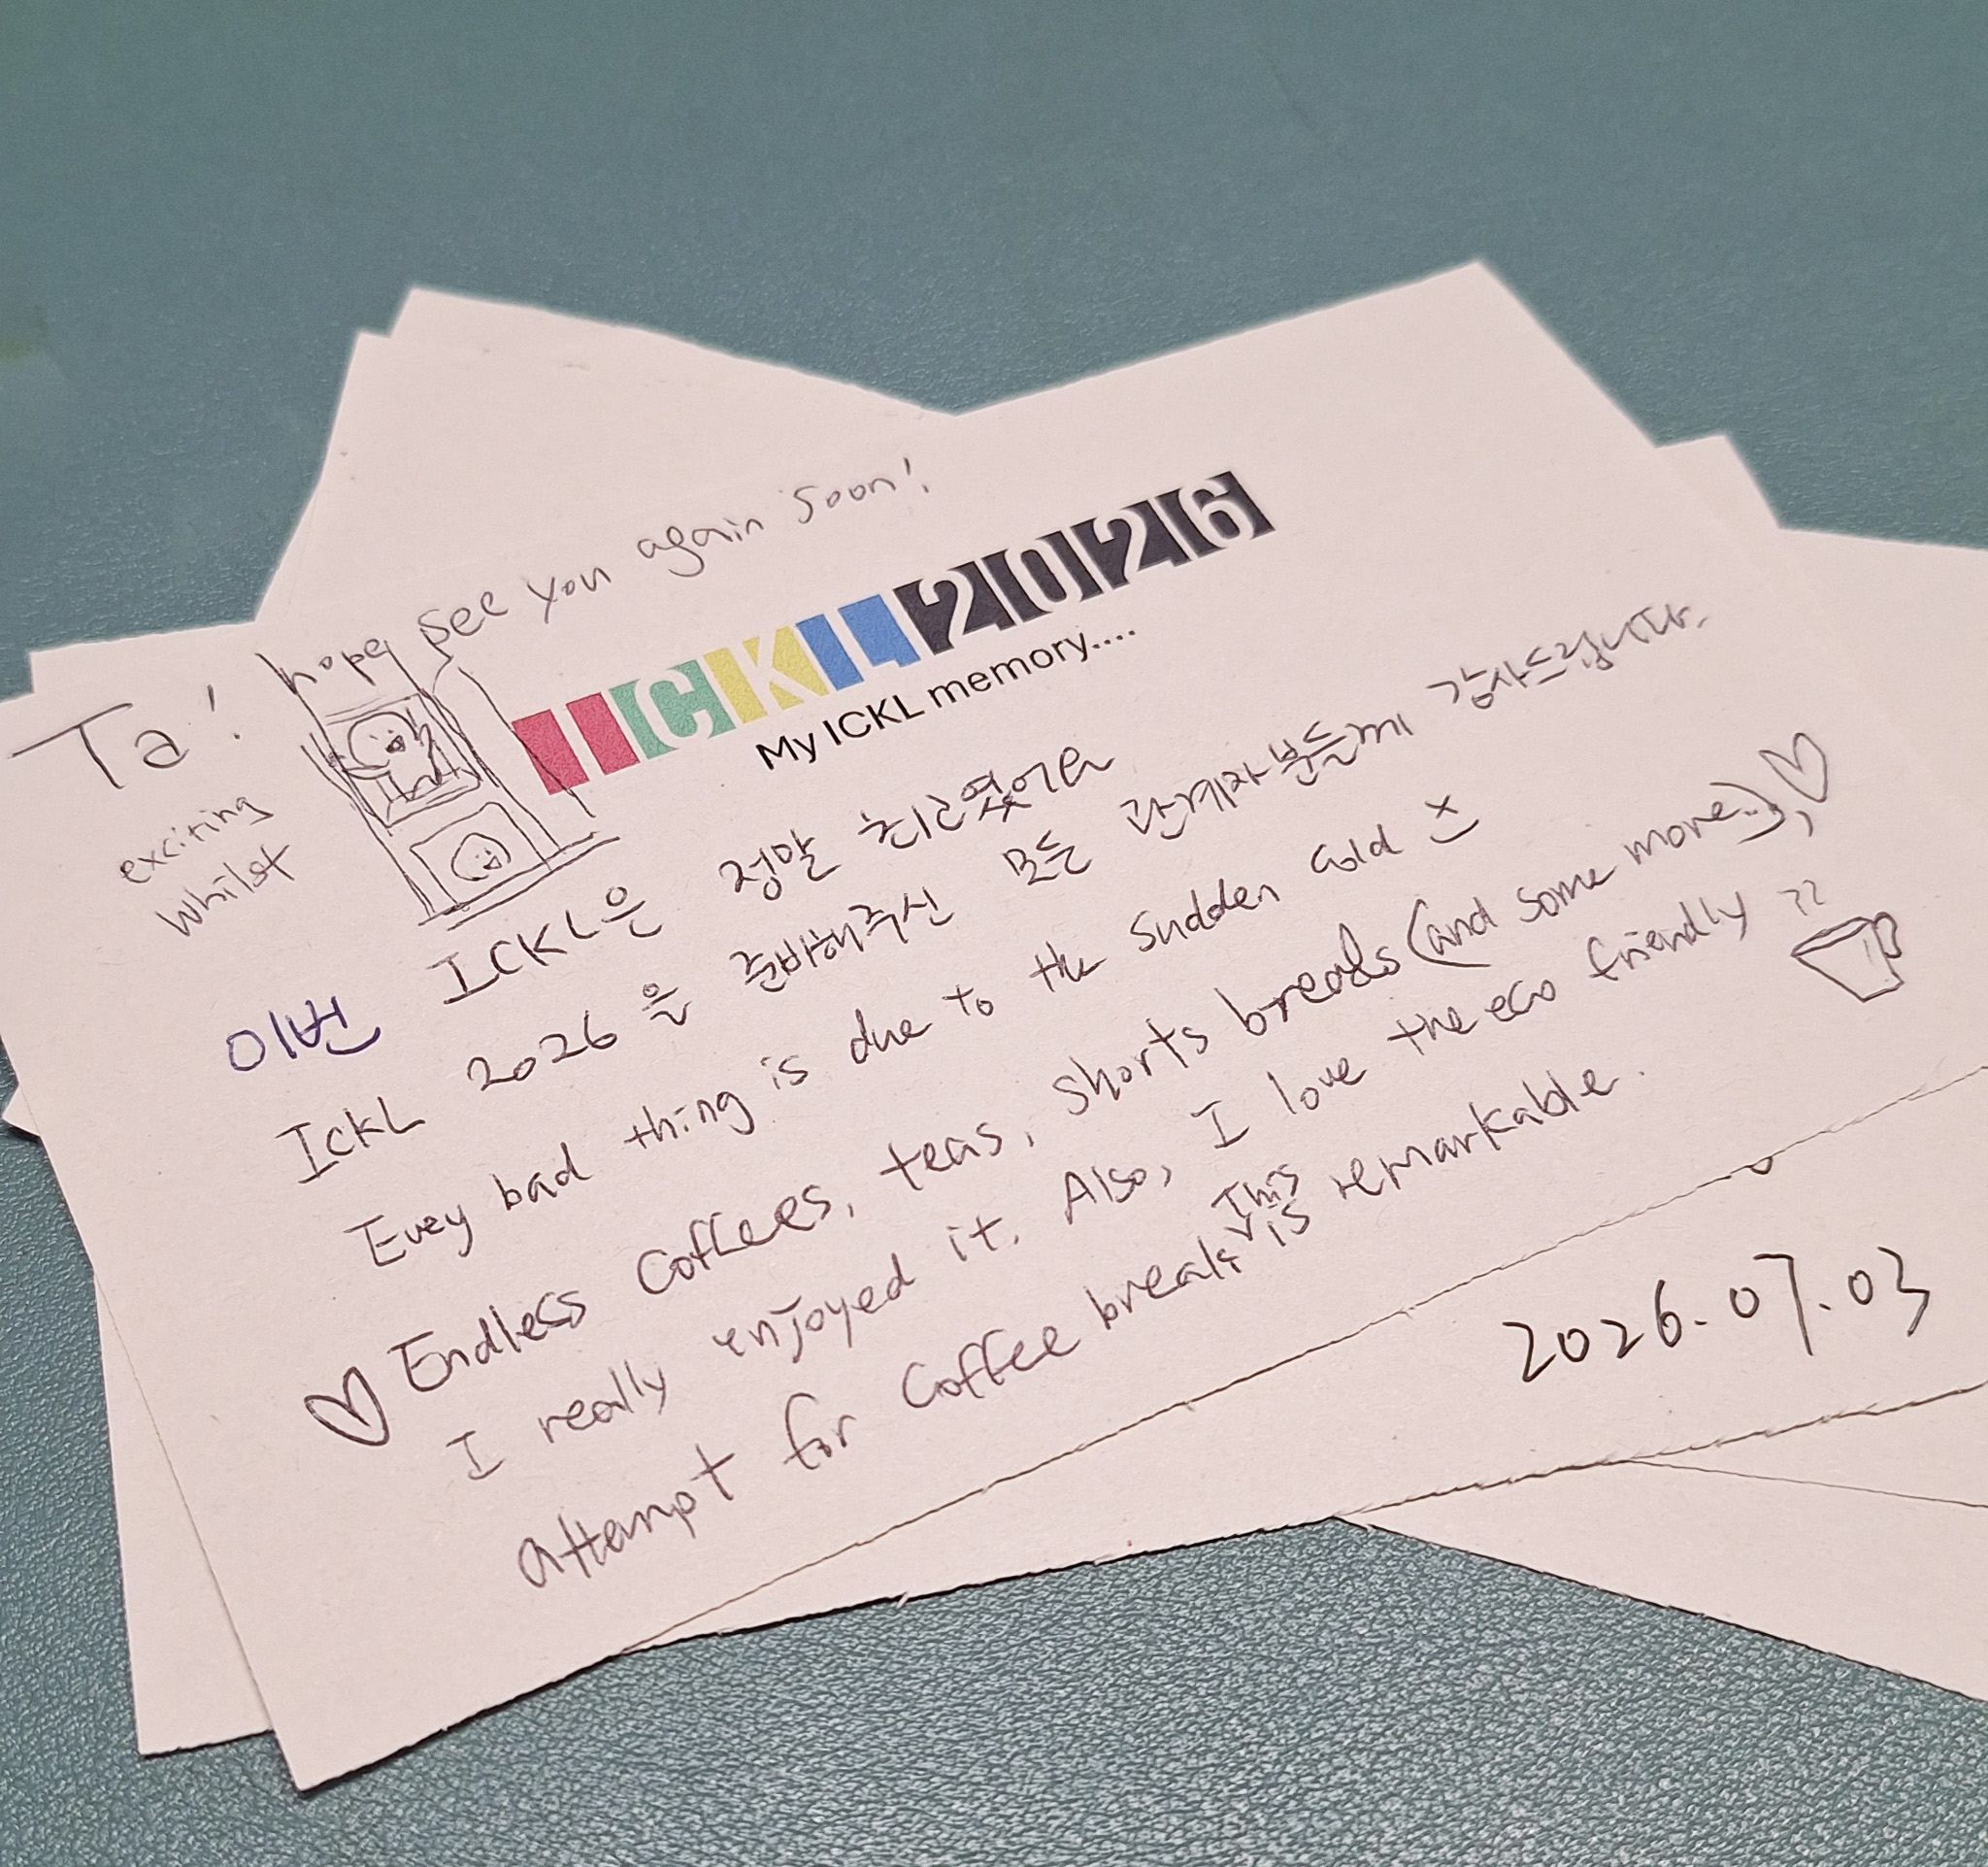 hope see you again soon!
Ta!
exciting
whilst
ICKL 2026
My ICKL memory....
이번 ICKL은 정말 흔치르였어요
ICKL 2026을 준비해주신 모든 관계자분들께 감사드립니다.
Evey bad thing is due to the sudden cold
Endless coffees, teas, shorts breads (and some more..),
I really enjoyed it. Also, I love the eco friendly
attempt for coffee breaks This is remarkable.
2026.07.03